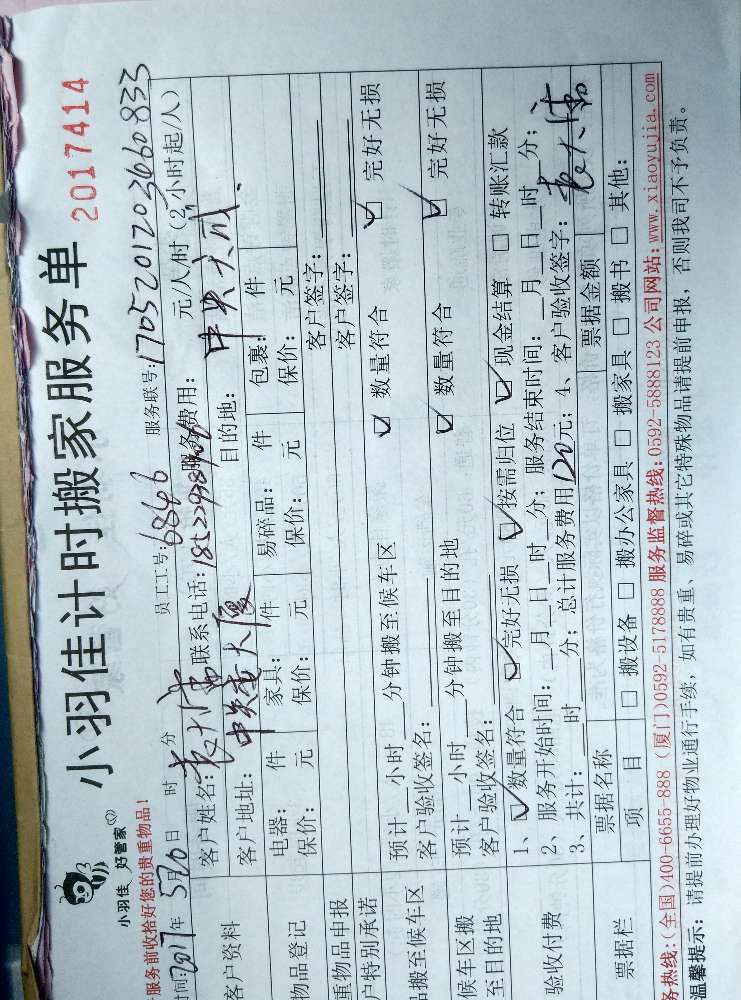 小羽佳计时搬家服务单
2017414
小羽佳 好管家
服务前收拾好您的贵重物品!
员工工号: 6846 服务联号: 1705201203660833
时间: 2017年 5月20日 时 分
客户资料
客户姓名: 联系电话: 服务费用: 元/人/时 (2小时起/人)
客户地址: 目的地:
物品登记
电器: 件 家具: 件 易碎品: 件 包裹: 件
保价: 元 保价: 元 保价: 元 保价: 元
重物品申报 客户签字:
户特别承诺 客户签字:
品搬至候车区
预计 小时 分钟搬至候车区 ☑ 数量符合 ☑ 完好无损
客户验收签名:
候车区搬至目的地
预计 小时 分钟搬至目的地 ☑ 数量符合 ☑ 完好无损
客户验收签名:
验收付费
1、☑ 数量符合 ☑ 完好无损 ☑ 按需归位 ☑ 现金结算 □ 转账汇款
2、服务开始时间: 月 日 时 分; 服务结束时间: 月 日 时 分;
3、共计: 时 分; 总计服务费用120元; 4、客户验收签字:
票据栏
票据名称 票据金额
项 目 □ 搬设备 □ 搬办公家具 □ 搬家具 □ 搬书 □ 其他:
务热线: (全国)400-6655-888 (厦门)0592-5178888 服务监督热线: 0592-5888123 公司网站: www.xiaoyujia.com
温馨提示: 请提前办理好物业通行手续, 如有贵重、易碎或其它特殊物品请提前申报, 否则我司不予负责。